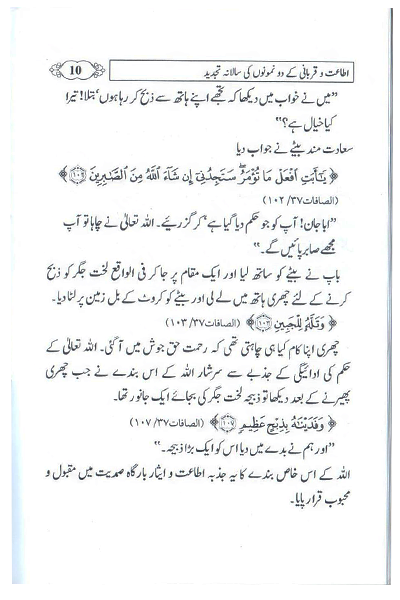 اطاعت و قربانی کے دو نمونوں کی سالانہ تجدید
10
”میں نے خواب میں دیکھا کہ تجھے اپنے ہاتھ سے ذبح کر رہا ہوں‘ بتلا! تیرا
کیا خیال ہے؟“
سعادت مند بیٹے نے جواب دیا
﴿ يَٰٓأَبَتِ ٱفۡعَلۡ مَا تُؤۡمَرُۖ سَتَجِدُنِيٓ إِن شَآءَ ٱللَّهُ مِنَ ٱلصَّٰبِرِينَ ١٠٢ ﴾
(الصافات ۳۷/ ۱۰۲)
”ابا جان! آپ کو جو حکم دیا گیا ہے‘ کر گزریئے۔ اللہ تعالیٰ نے چاہا تو آپ
مجھے صابر پائیں گے۔“
باپ نے بیٹے کو ساتھ لیا اور ایک مقام پر جا کر فی الواقع لخت جگر کو ذبح
کرنے کے لئے چھری ہاتھ میں لے لی اور بیٹے کو کروٹ کے بل زمین پر لٹا دیا۔
﴿ وَتَلَّهُۥ لِلۡجَبِينِ ١٠٣ ﴾ (الصافات ۳۷/ ۱۰۳)
چھری اپنا کام کیا ہی چاہتی تھی کہ رحمت حق جوش میں آ گئی۔ اللہ تعالیٰ کے
حکم کی ادائیگی کے جذبے سے سرشار اللہ کے اس بندے نے جب چھری
پھیرنے کے بعد دیکھا تو ذبیحہ لخت جگر کی بجائے ایک جانور تھا۔
﴿ وَفَدَيۡنَٰهُ بِذِبۡحٍ عَظِيمٖ ١٠٧ ﴾ (الصافات ۳۷/ ۱۰۷)
”اور ہم نے بدے میں دیا اس کو ایک بڑا ذبیحہ۔“
اللہ کے اس خاص بندے کا یہ جذبہ اطاعت و ایثار بارگاہ صمدیت میں مقبول و
محبوب قرار پایا۔